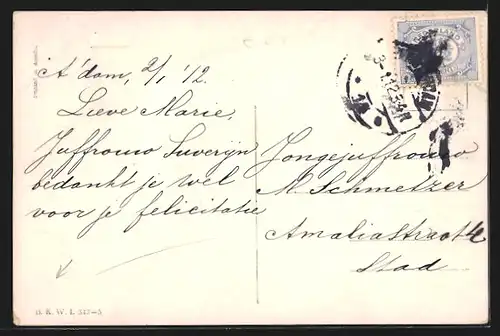 A'dam, 2/1 '12.
Lieve Marie,
Juffrouw Suverijn
bedankt je wel
voor je felicitatie
Jongejuffrouw
M. Schmetzer
Amaliastraat 4
Stad
B. K. W. I. 517-5